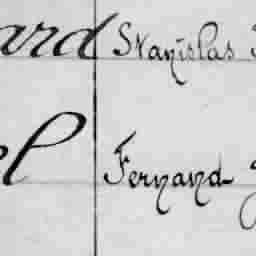 ard Stanislas
el Fernand